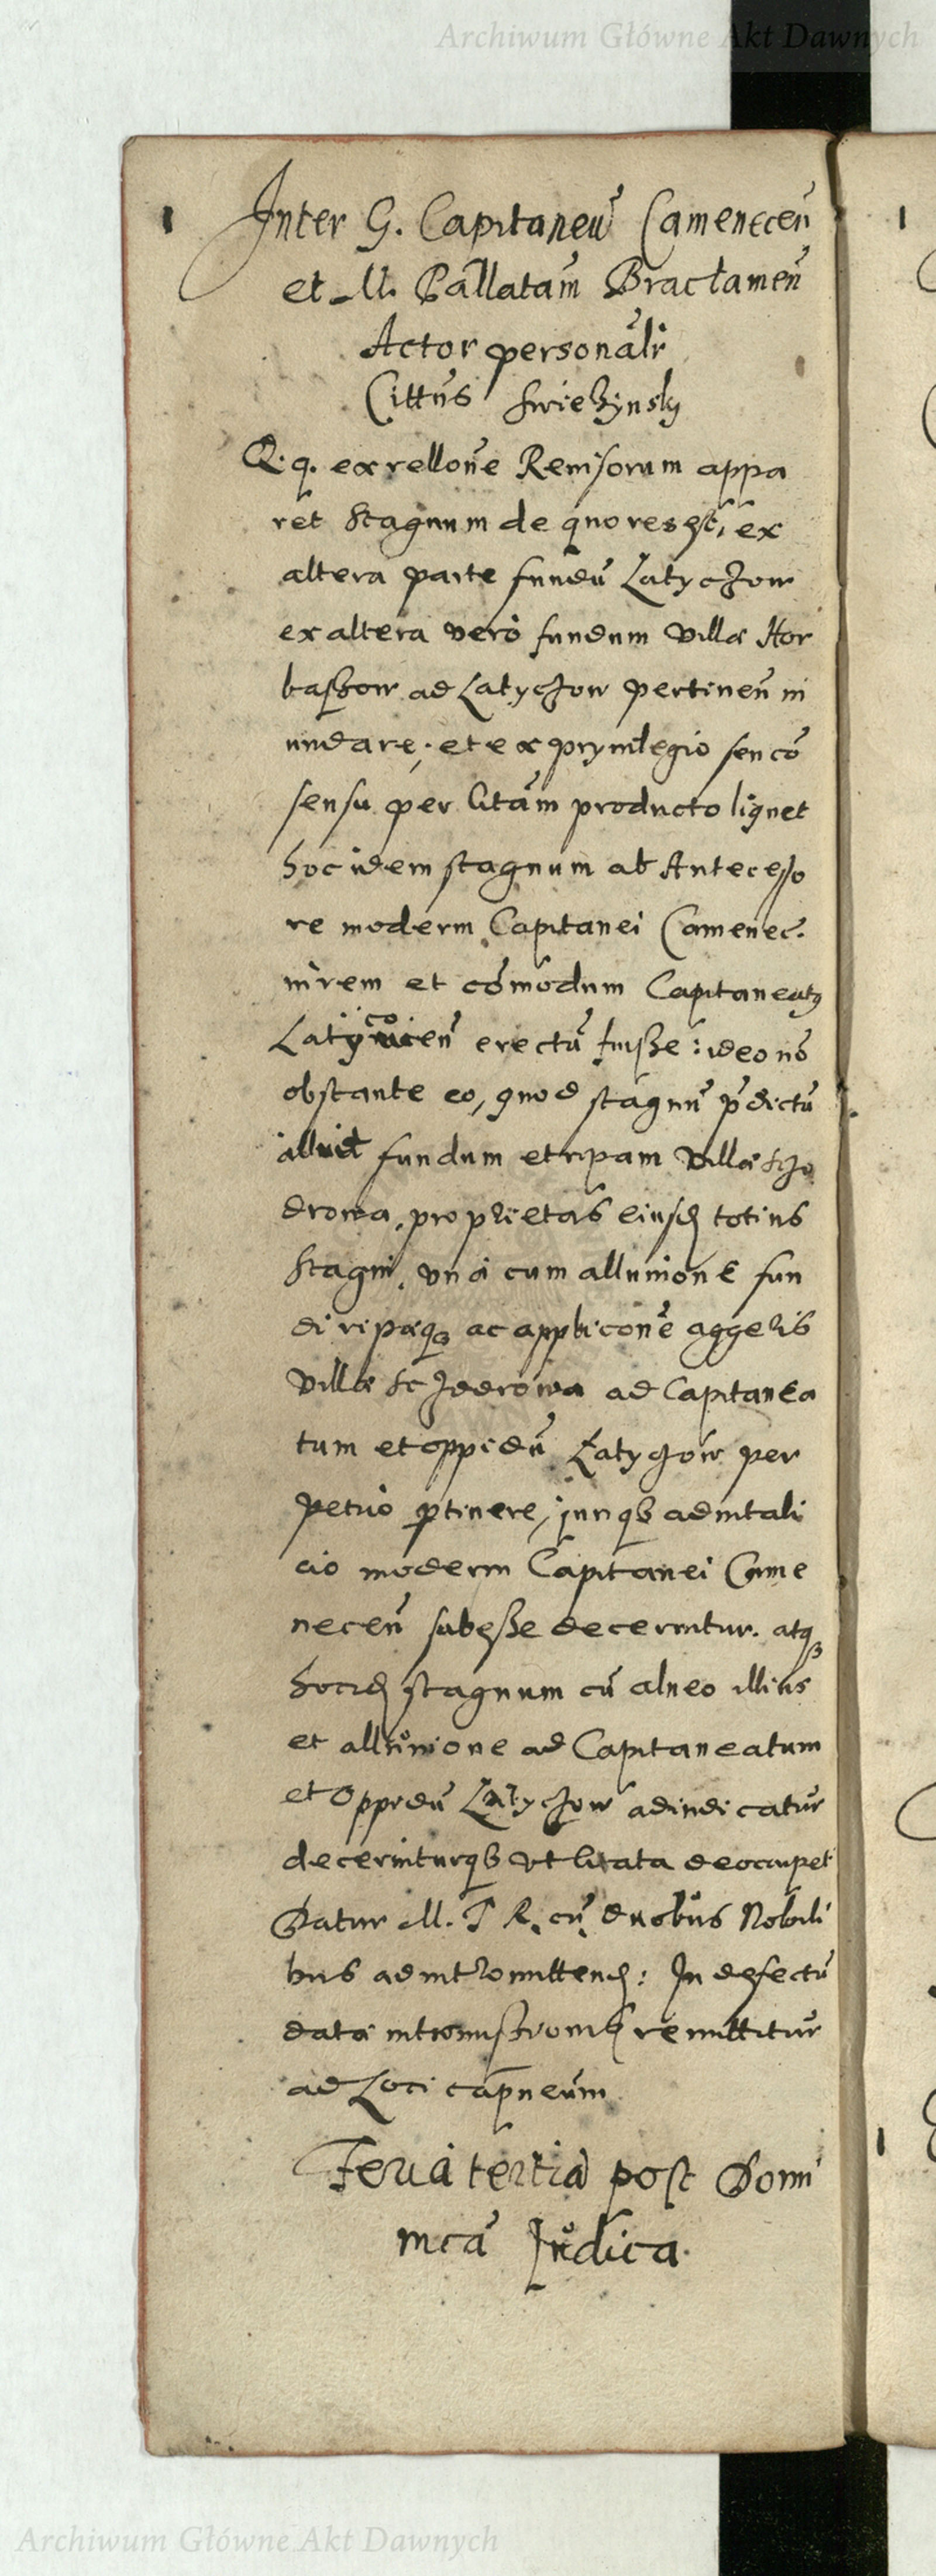 Archiwum Główne Akt Dawnych
Inter G. Capitaneū Cameneceñ
et M. Pallatam̃ Braclameñ
Actor personal̃r
Cittūs Swieżynsky
Q. q. ex rellon̄e Reuisorum appa
ret Stagnum de quo res est, ex
altera parte fundū Latychow
ex altera vero fundum villæ Hor
baszow ad Latychow pertineñ in
undare; et ex pryuilegio seu cō
sensu per Citām producto liquet
hoc idem stagnum ab Antecesso
re moderni Capitanei Camenec.
in rem et cōmodum Capitaneatq
Latyco erectū fuisse: ideo nō
obstante eo, quod stagnū p̄dictū
alluit fundum et ripam villæ Scho
drowa, proprietas eiusd totius
Stagni, vna cum alluuione fun
di ripæq3 ac applicon̄e aggeris
villæ Schodrowa ad Capitanea
tum et oppidū Latychow per
petuo ptinere, jurīqb aduitali
cio moderni Capitanei Came
neceñ subesse decernitur. atq3
hocid stagnum cū alueo illius
et alluuione ad Capitaneatum
et Oppidū Latychow adiudicatur
decerniturqb vt citata deoccupet
Datur M. T R. cū duobus Nobili
bus ad intromittend: In defectū
datæ intromissionis remittitur
ad Loci capneum
Feria tertia post Domi
nicā Iudica.
Archiwum Główne Akt Dawnych